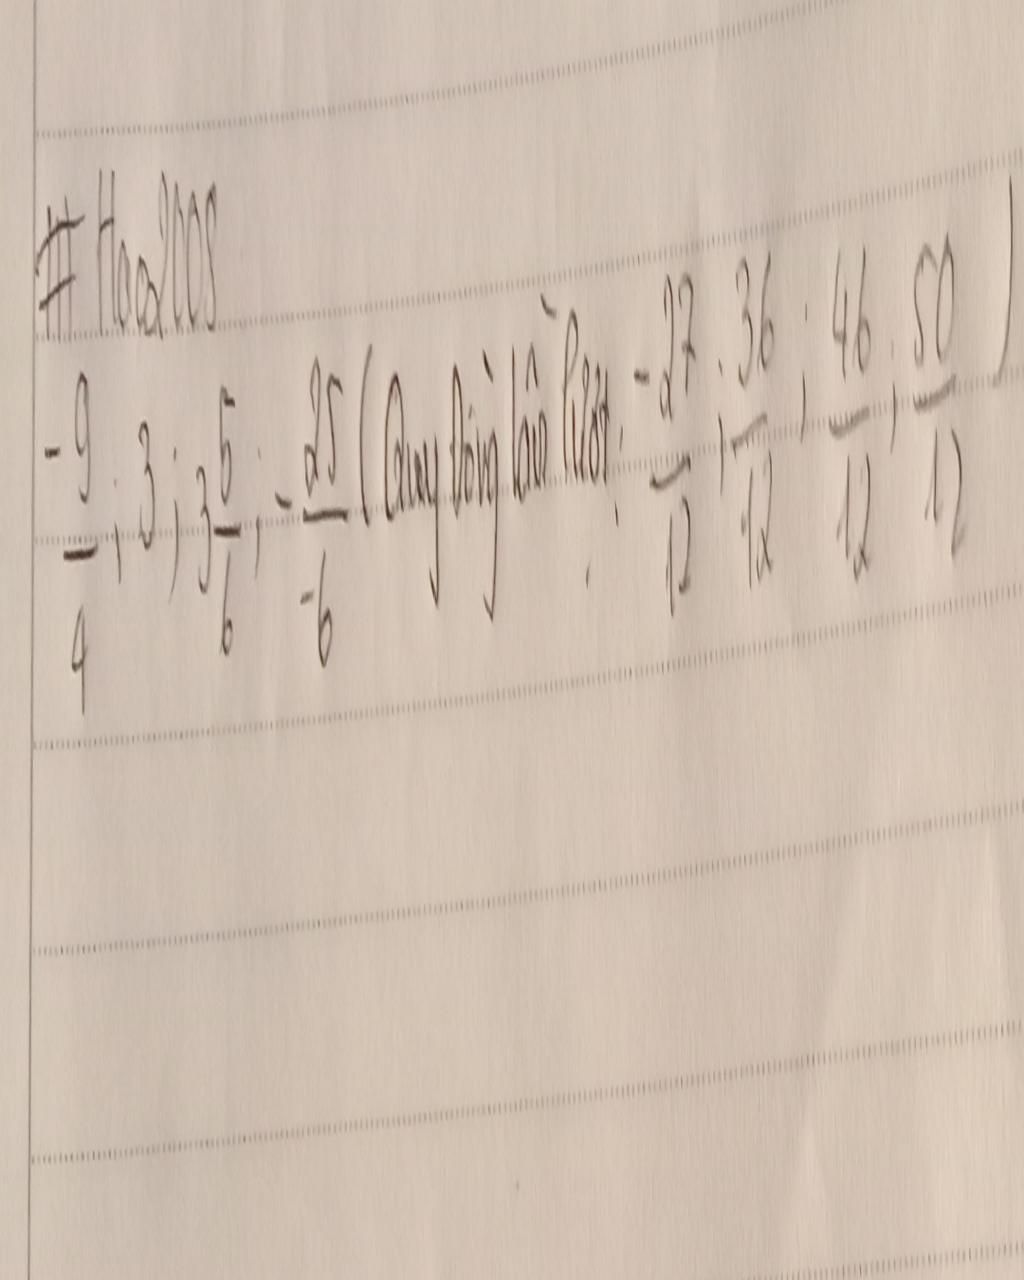 # Hoa2008
-9/4 ; 3 ; 3 5/6 ; -25/-6 (Quy đồng lần lượt: -27/12 ; 36/12 ; 46/12 ; 50/12)